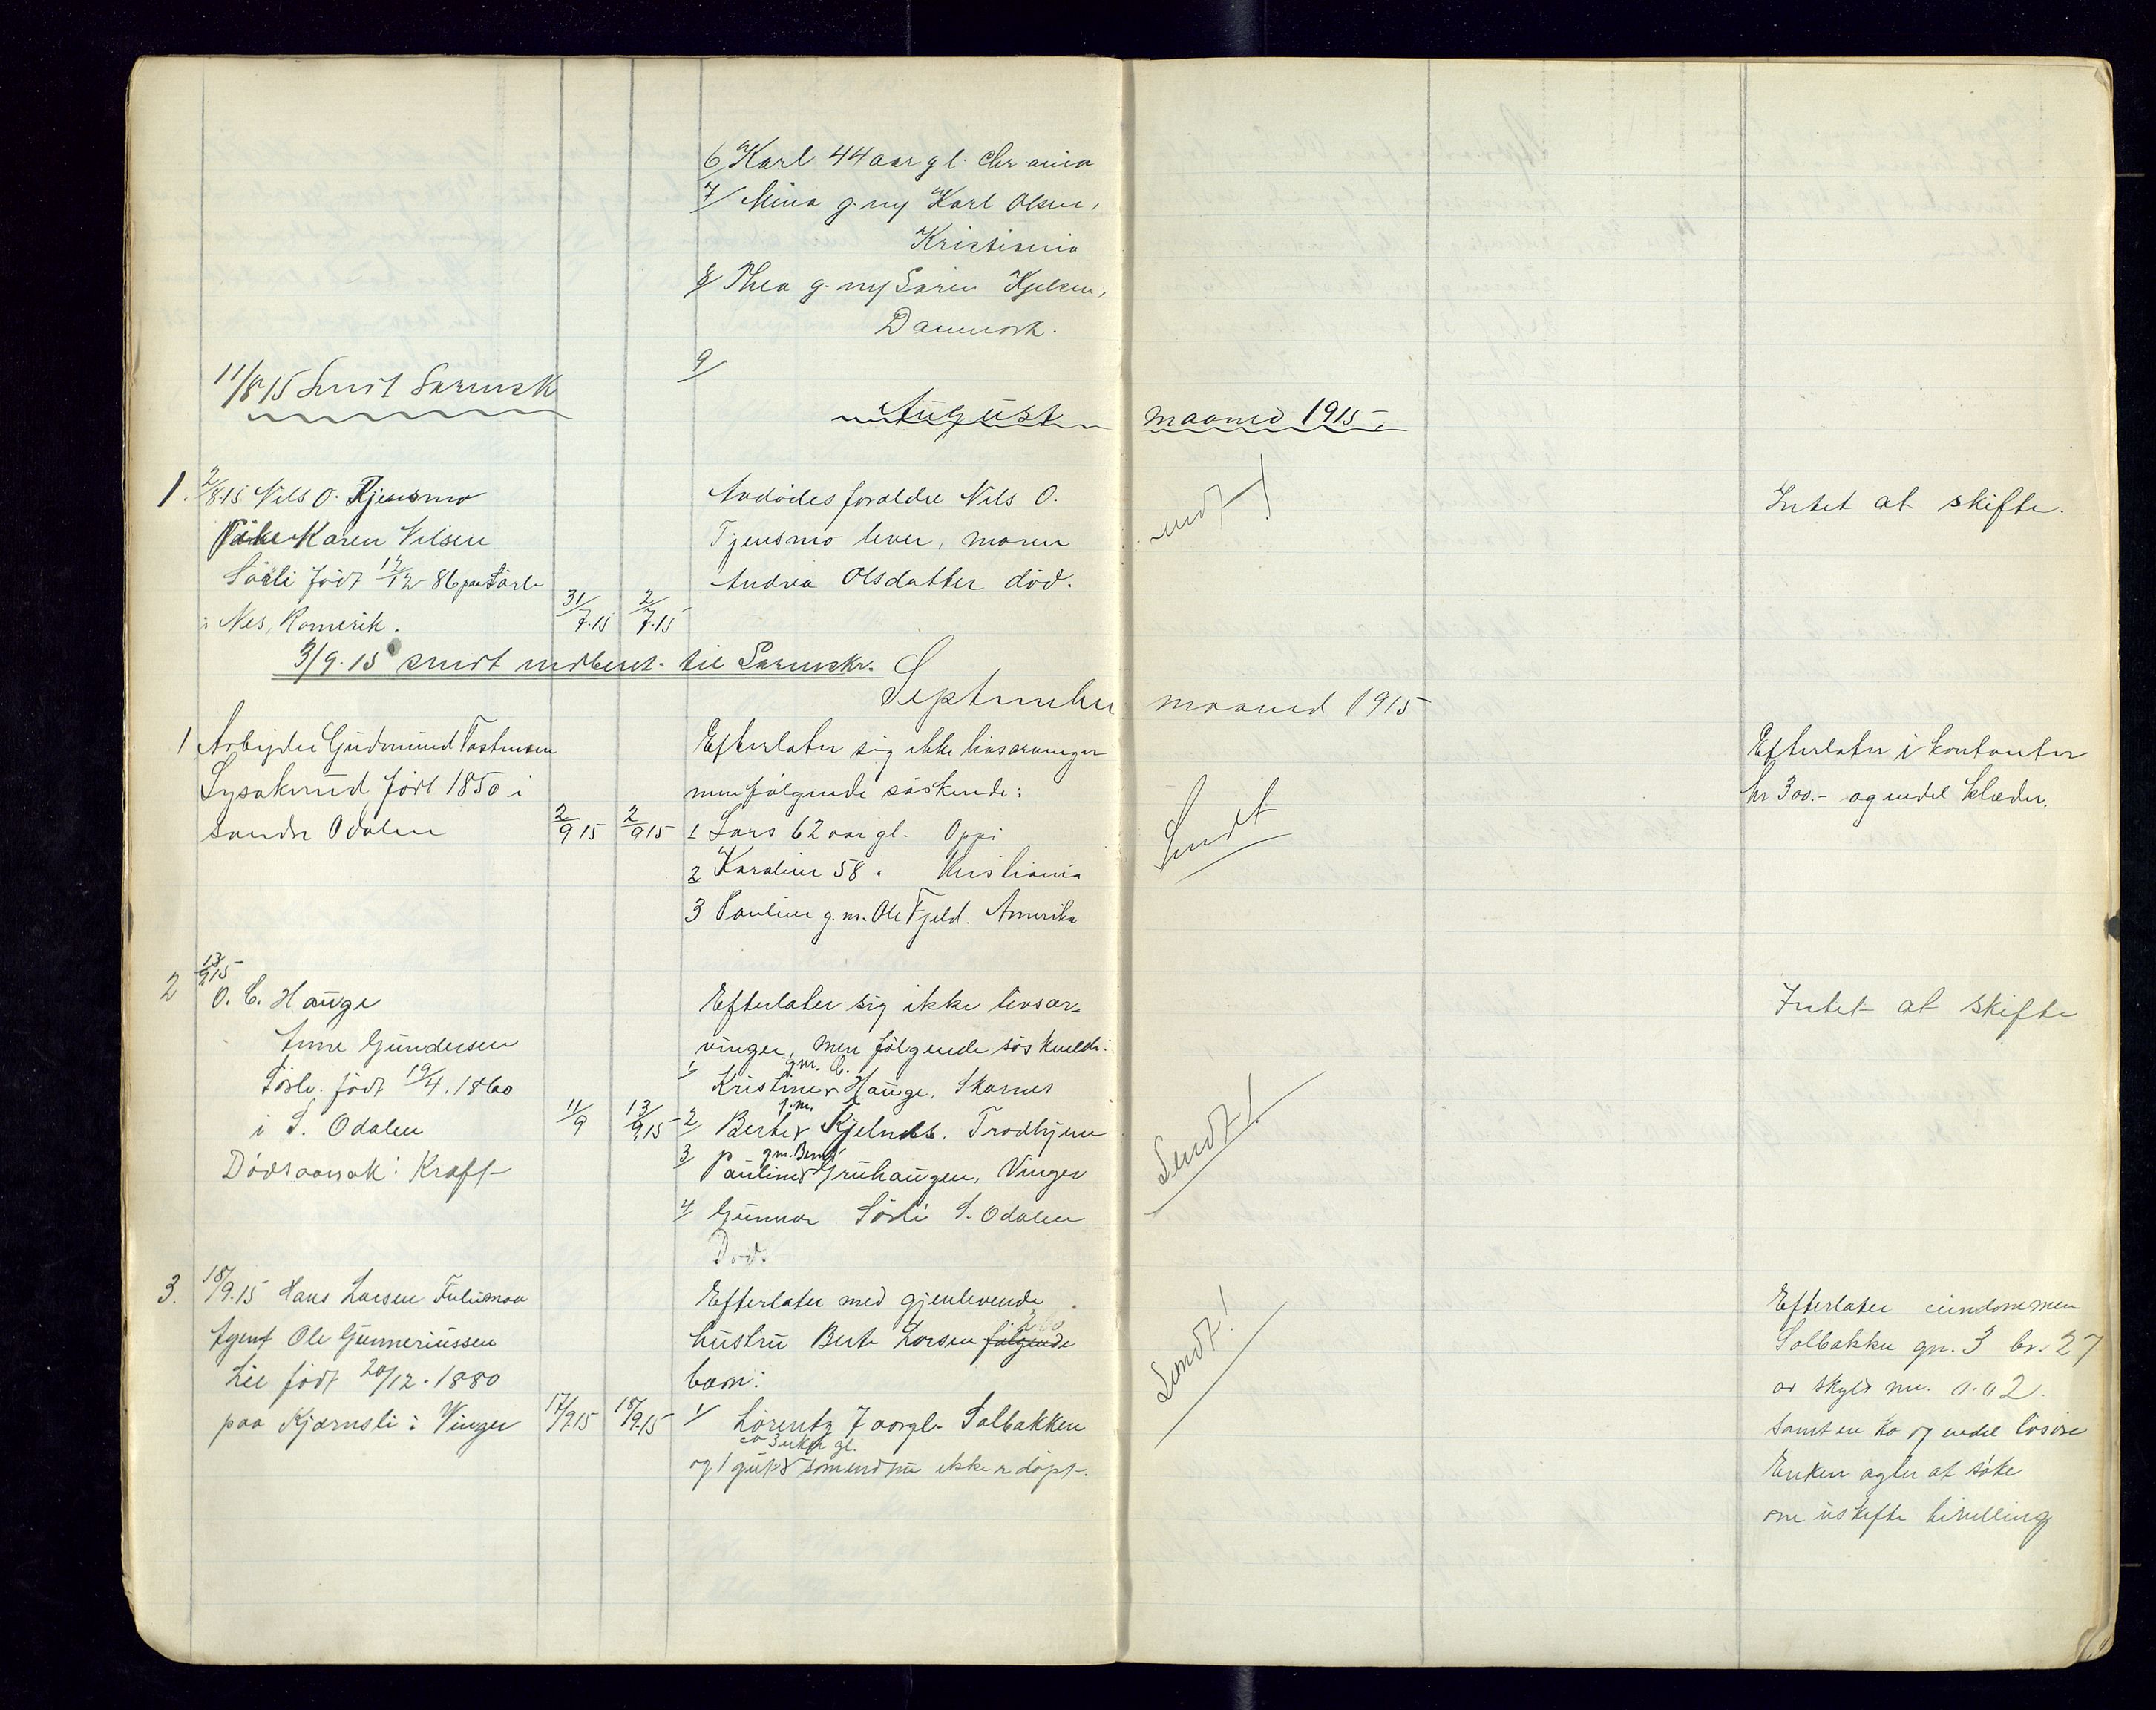 6/ Karl 44 aar gl. Chr ania
7/ Mina g. m/ Karl Olsen,
Kristiania
8/ Thea g. m/ Sören
Danmark.
9/
11/8 15 Sendt Sorensk
August maaned 1915.
1. 2/8.15 Nils O. Tjensmo
Pike Karen Nilsen
Sörli födt 12/12 86 paa Sörli
i Nes, Romerik.
31/7.15
2/7.15
Avdödes foraldre Nils O.
Tjensmo lever, moren
Andrea Olsdatter död.
endt!
Intet at skifte.
3/9.15 sendt indberet. til Sorenskr.
September maaned 1915
1 Arbeider Gudmund Tostensen
Lysakrud födt 1850 i
söndre Odalen
2/9 15
2/9 15
Efterlater sig ikke livsarvinger
men fölgende söskende:
1 Lars 62 aar gl. Oppi
2 Karoline 58 " Kristiania
3 Pauline g. m. Ole Fjeld. Amerika
Sendt
Efterlater i kontanter
kr 300.- og endel klæder.
2 13/9 15
O. C. Hauge
Anne Gundersen
Sörli. födt 19/4. 1860
i S. Odalen
Dödsaarsak: Kræft
11/9
13/9 15
Efterlater sig ikke livsar-
vinger, men fölgende söskende:
1/ Kristine gm. C. Hauge, Skarnes
2/ Berte g.m. Trodhjem
3/ Pauline gm. Bernt Gruhaugen, Vinger
4/ Gunnar Sörli S. Odalen
Död.
Sendt!
Intet at skifte
3. 18/9.15 Hans Larsen
Agent Ole Gunneriussen
Lie födt 20/12. 1880
paa Kjærnsli i Vinger
17/9.15
18/9.15
Efterlater med gjenlevende
hustru Berte Larsen fölgende 2
barn:
1/ Lorentz 7 aar gl. Solbakken
ca 3 uker gl.
og 1 gut som endnu ikke er döpt.
Sendt!
Efterlater eiendommen
Solbakken gn. 3 br. 27
av skyld mr. 0.02.
samt en ko og endel lösöre
Enken agter at söke
om uskifte bevilling